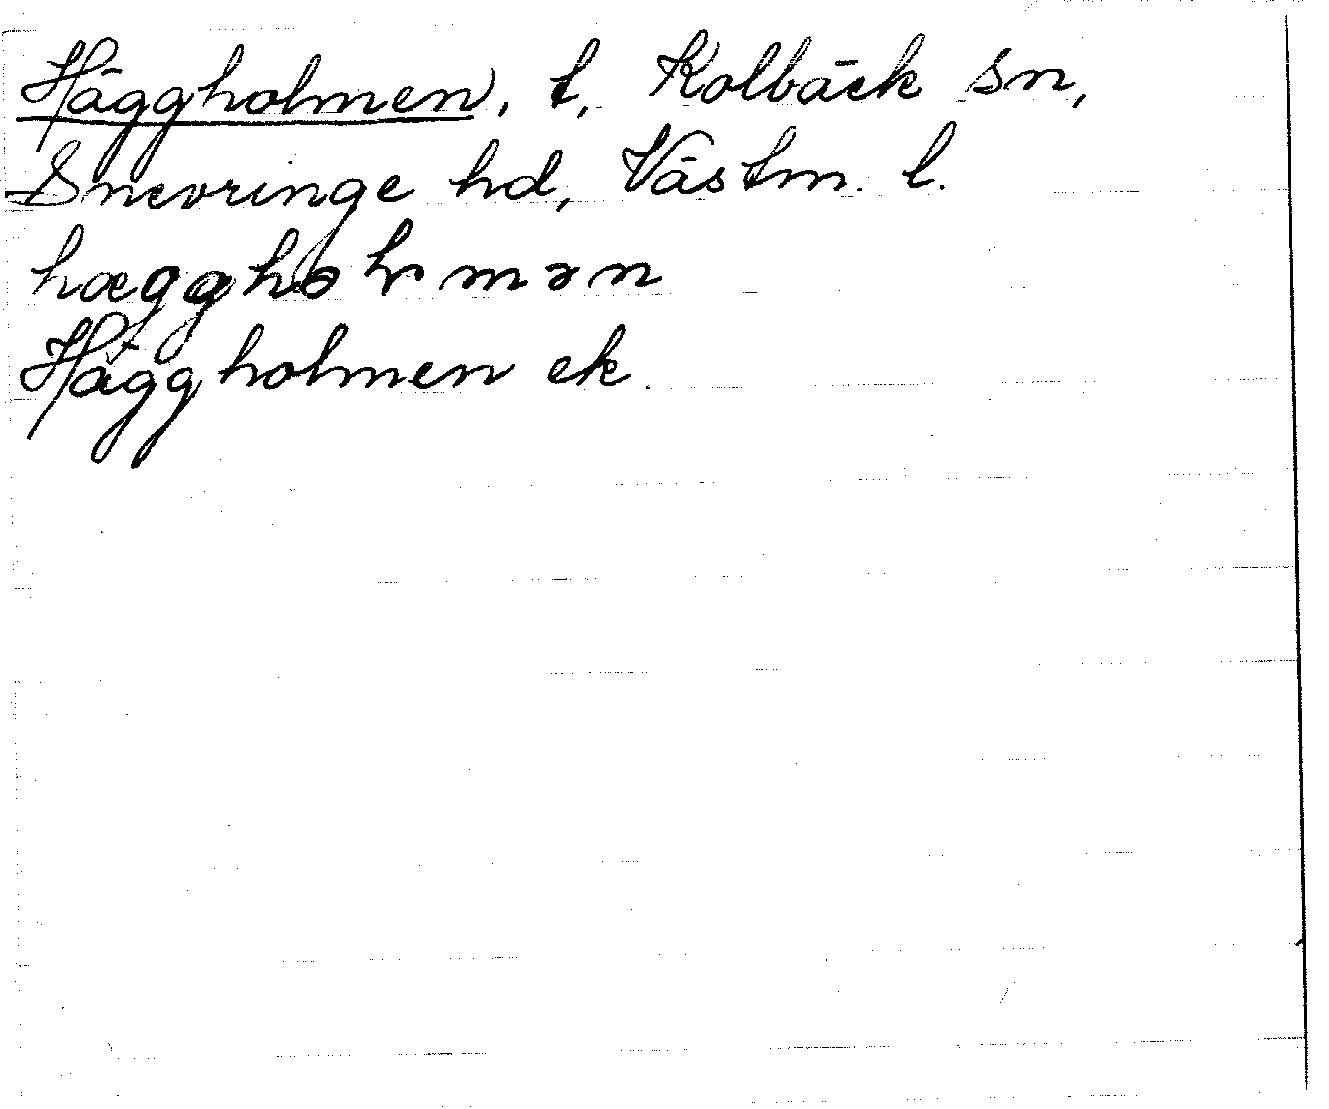 Häggholmen, t, Kolbäck sn,
Snevringe hd, Västm. l.
Häggholmen ek.